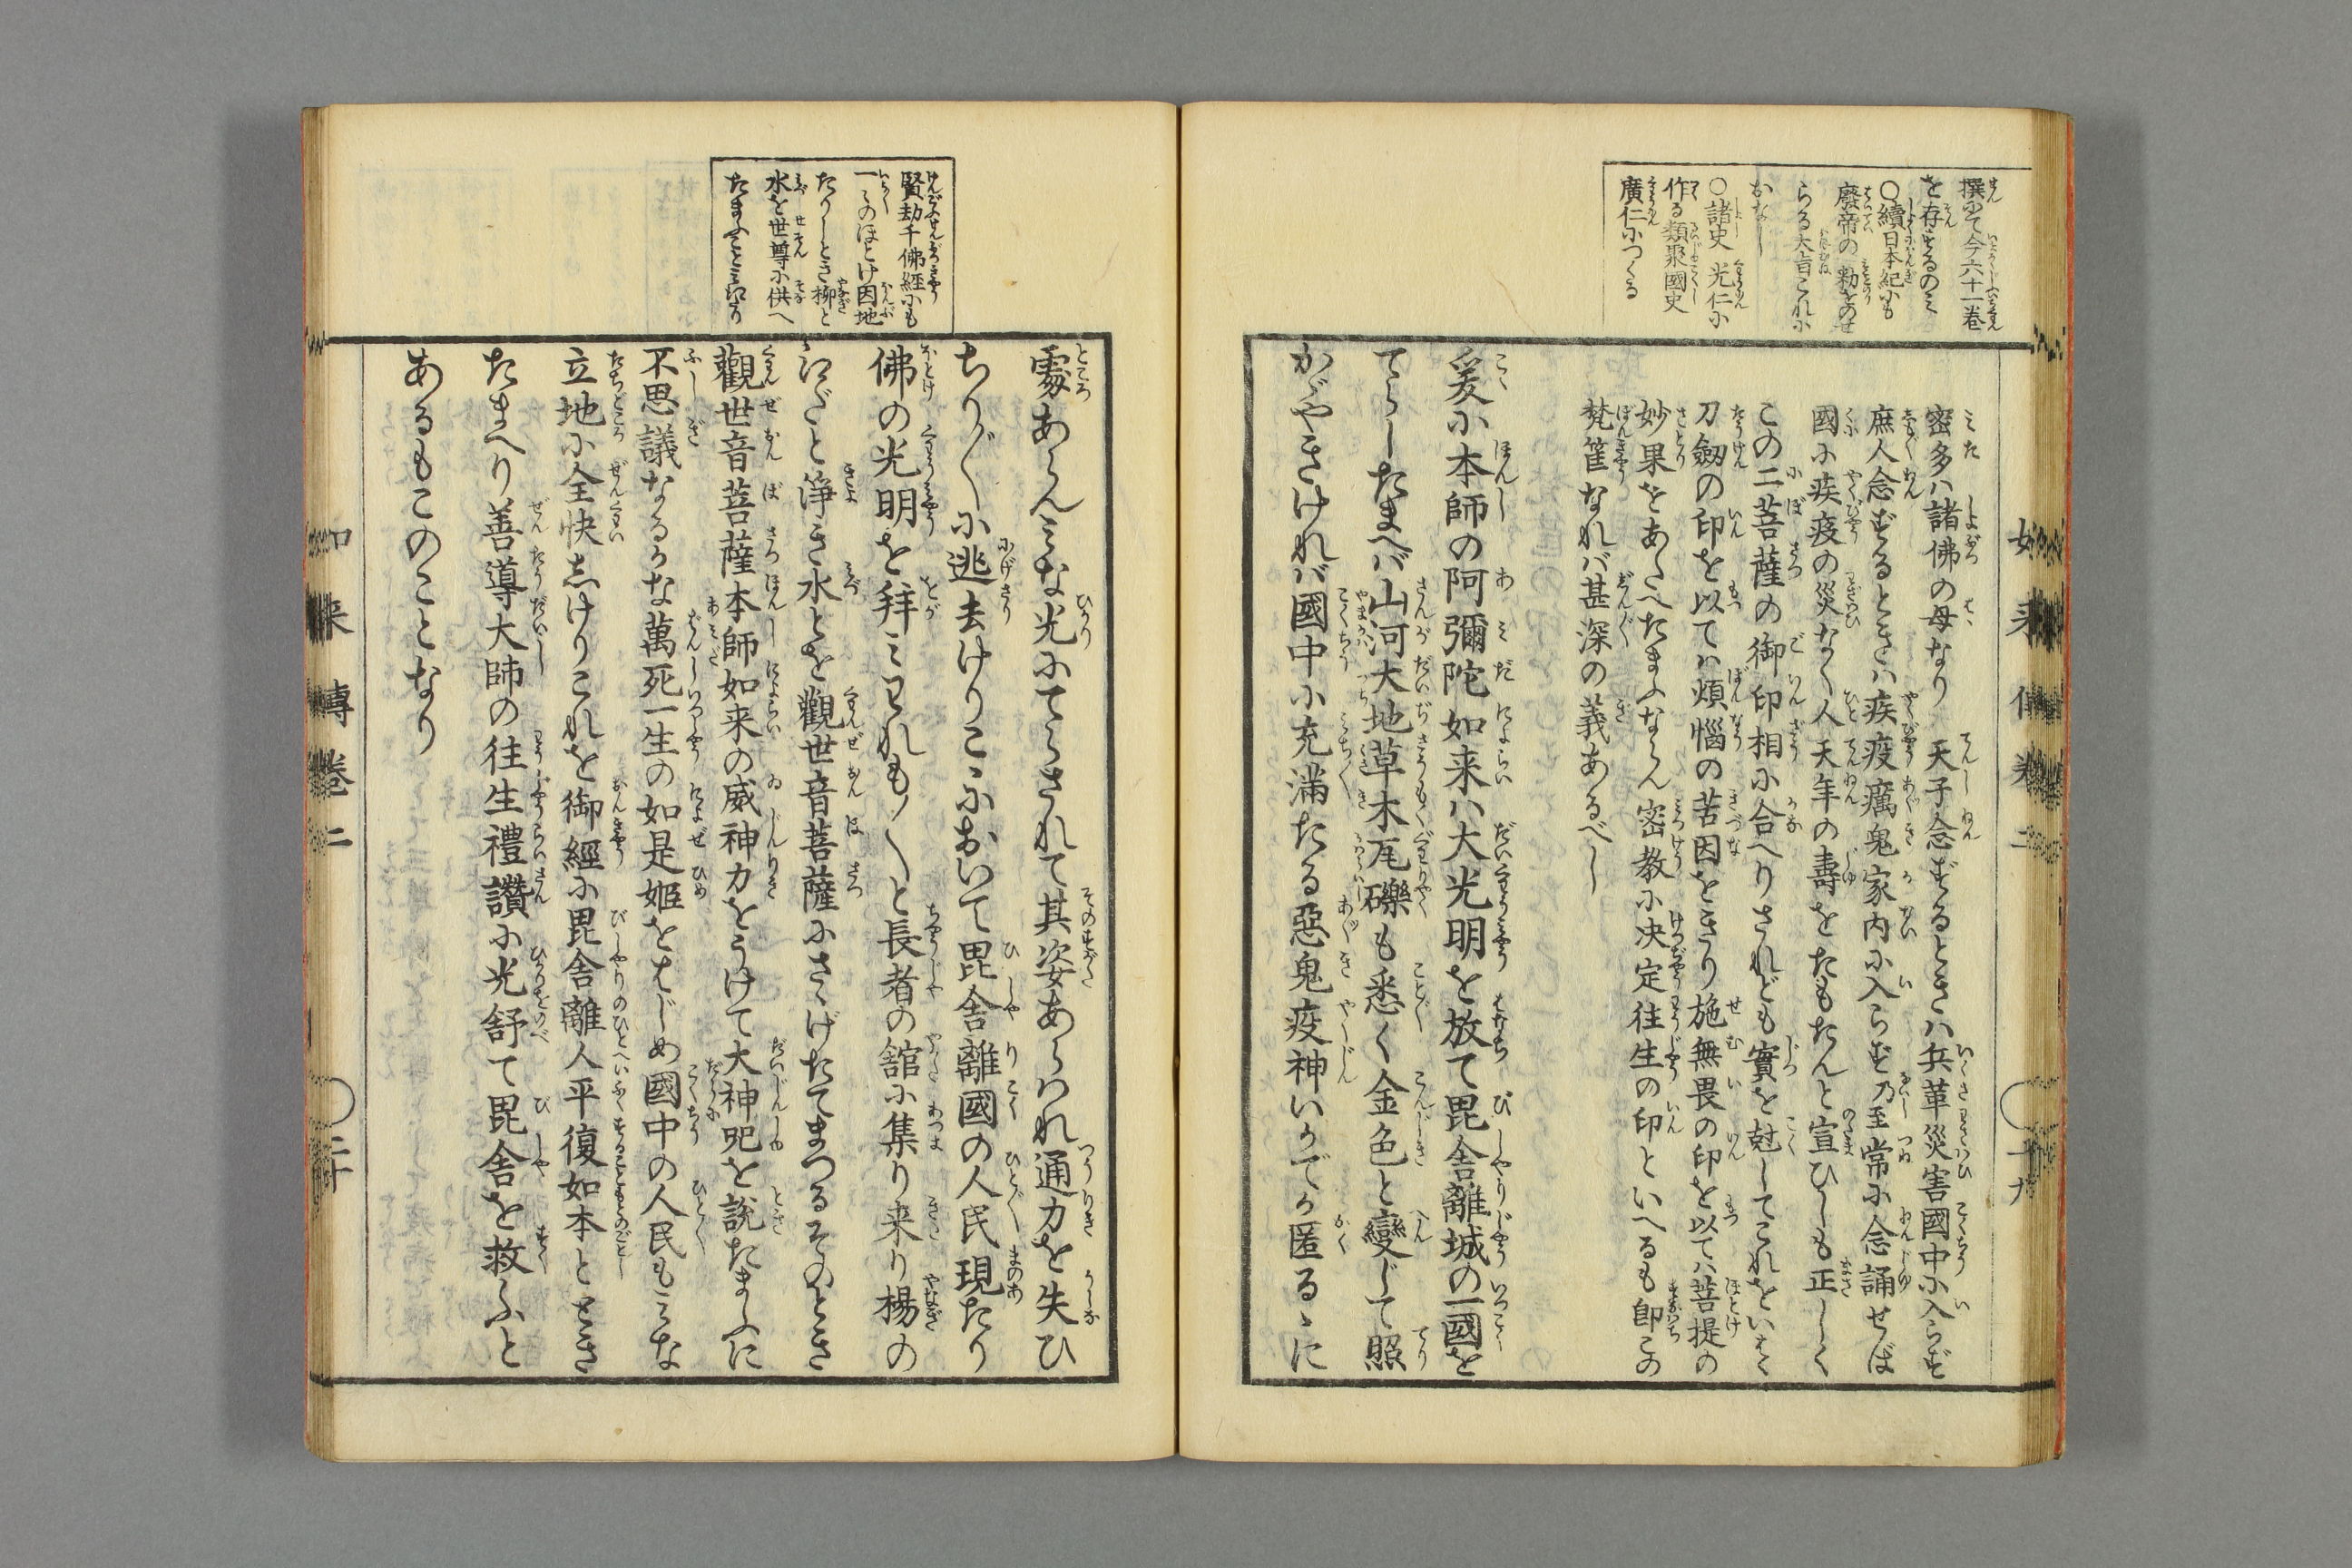 撰ぶて今六十一巻
を存するのミ
〇續日本紀にも
廢帝の勅をのせ
らる大旨これに
おなし
〇諸史 光仁に
作る類聚國史
廣仁につくる
密多ハ諸佛の母なり 天子念ずるときハ兵革災害國中に入らず
庶人念ずるときハ疾疫癘鬼家内に入らず乃至常に念誦せば
國に疾疫の災なく人天年の壽をたもたんと宣ひしも正しく
この二菩薩の御印相に合へりされども實を尅してこれをいはく
刀劔の印を以てハ煩惱の苦因をきり施無畏の印を以てハ菩提の
妙果をあたへたまふならん密教に决定往生の印といへるも即この
梵篋なれバ甚深の義あるべし
爰に本師の阿彌陀如来ハ大光明を放て毘舎離城の一國を
てらしたまへバ山河大地草木瓦礫も悉く金色と變じて照
かゞやきけれバ國中に充滿たる惡鬼疫神いかでか匿るゝに
如来傳巻二 〇十九
賢劫千佛經にも
一々のほとけ因地
たりしとき柳と
水を世尊に供へ
たまふことミえたり
處あらんミな光にてらされて其姿あらハれ通力を失ひ
ちり〴〵に逃去けりこゝにおいて毘舎離國の人民現たり
佛の光明を拜ミわれも〳〵と長者の舘に集り来り楊の
えだと淨き水とを觀世音菩薩にさゝげたてまつるそのとき
觀世音菩薩本師如来の威神力をうけて大神呪を説たまふに
不思議なるかな萬死一生の如是姫をはじめ國中の人民もミな
立地に全快しけりこれを御經に毘舎離人平復如本ととき
たまへり善導大師の往生禮讚に光舒て毘舎を救ふと
あるもこのことなり
如来傳巻二 〇二十